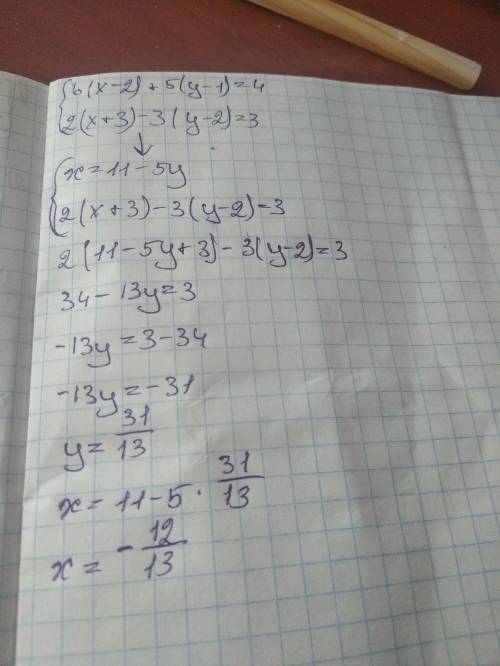 6(x-2)+5(y-1)=4
2(x+3)-3(y-2)=3
↓
x=11-5y
2(x+3)-3(y-2)=3
2(11-5y+3)-3(y-2)=3
34-13y=3
-13y=3-34
-13y=-31
y=31/13
x=11-5·31/13
x=-12/13